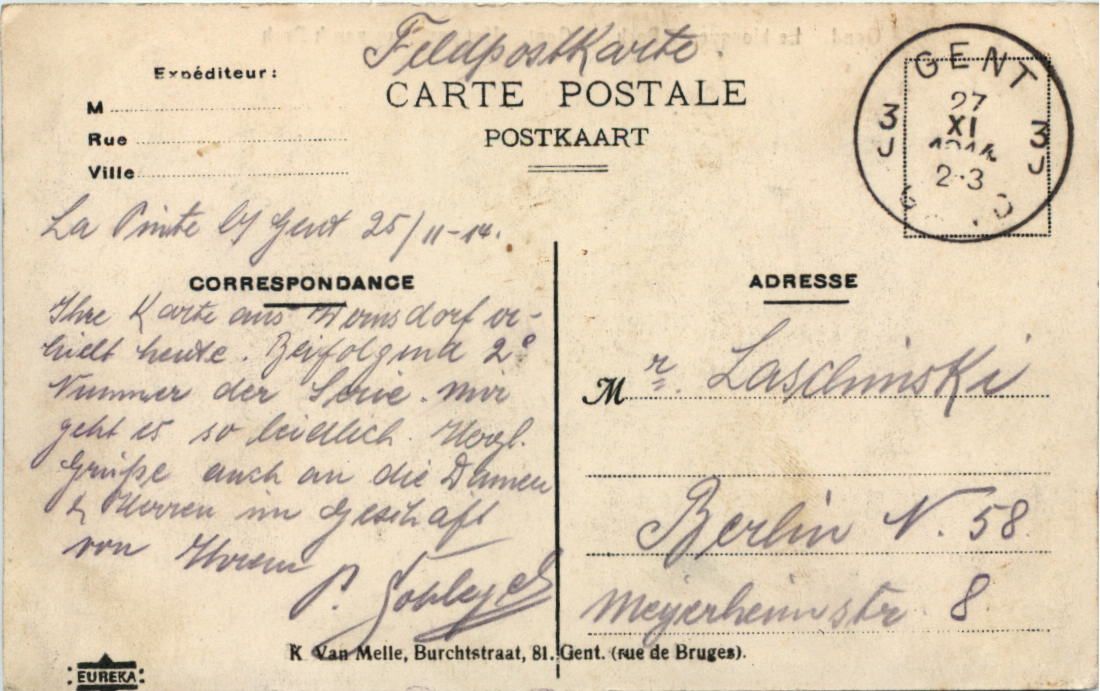 Feldpostkarte.
CARTE POSTALE
POSTKAART
Expéditeur:
M
Rue
Ville
GENT
3 27 3
J XI J
1914
2-3
La Pinte b/ Gent 25/11-14.
CORRESPONDANCE
Ihre Karte aus er-
hielt heute. Beifolgend 2e
Nummer der Serie. Mir
geht es so leidlich. Herzl.
Grüße auch an die Damen
& Herren im Geschäft
von Ihrem
P.
ADRESSE
Mr. Laschinski
Berlin N. 58.
Meyerheimstr. 8
K Van Melle, Burchtstraat, 81. Gent. (rue de Bruges).
EUREKA